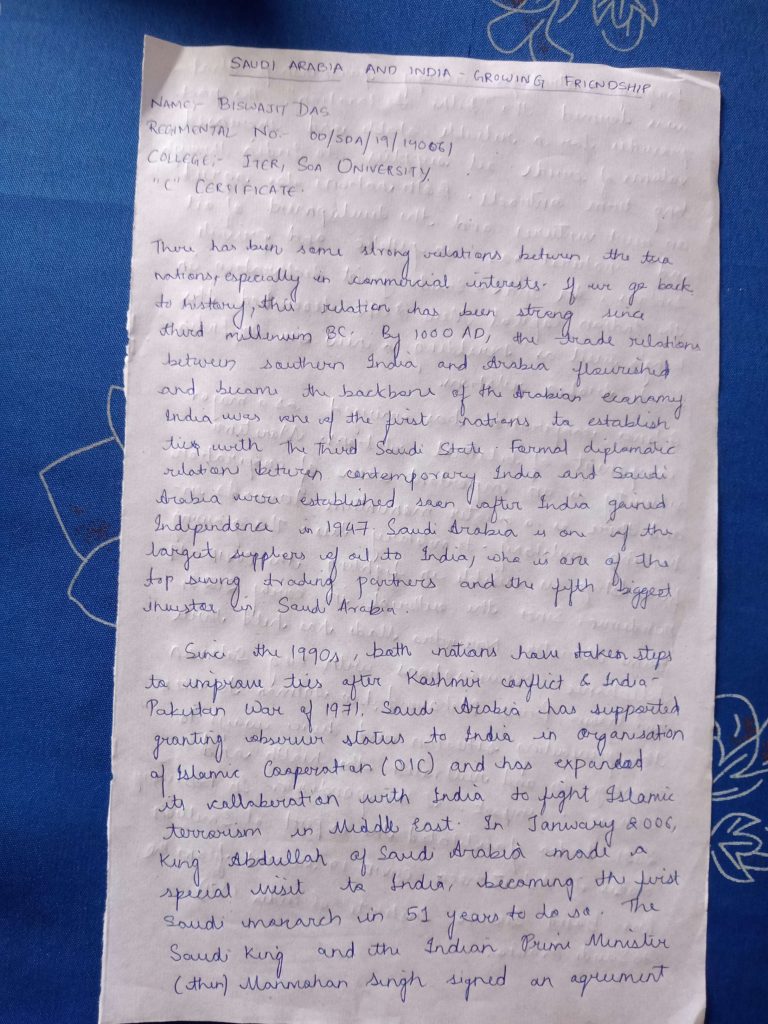 SAUDI ARABIA AND INDIA - GROWING FRIENDSHIP
NAME:- BISWAJIT DAS
REGIMENTAL NO:- OD/SDA/19/190061
COLLEGE:- ITER, SOA UNIVERSITY
"C" CERTIFICATE.
There has been some strong relations between the two
nations, especially in commercial interests. If we go back
to history, this relation has been strong since
third millenium BC. By 1000 AD, the trade relations
between southern India and Arabia flourished
and became the backbone of the Arabian economy
India was one of the first nations to establish
ties with the Third Saudi State. Formal diplomatic
relation between contemporary India and Saudi
Arabia were established soon after India gained
Independence in 1947. Saudi Arabia is one of the
largest suppliers of oil to India, who is one of the
top seven trading partners and the fifth biggest
investor in Saudi Arabia.
Since the 1990s, both nations have taken steps
to improve ties after Kashmir conflict & India-
Pakistan War of 1971. Saudi Arabia has supported
granting observer status to India in Organisation
of Islamic Cooperation (OIC) and has expanded
its collaboration with India to fight Islamic
terrorism in Middle East. In January 2006,
King Abdullah of Saudi Arabia made a
special visit to India, becoming the first
Saudi monarch in 51 years to do so. The
Saudi King and the Indian Prime Minister
(then) Manmohan Singh signed an agreement